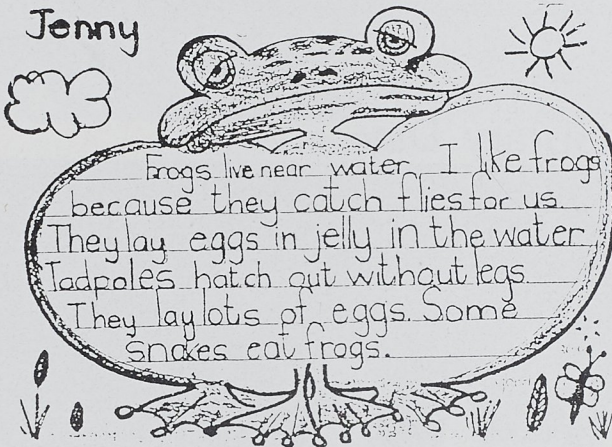 Jenny
Frogs live near water I like frogs
because they catch flies for us.
They lay eggs in jelly in the water
Tadpoles hatch out without legs
They lay lots of eggs. Some
snakes eat frogs.